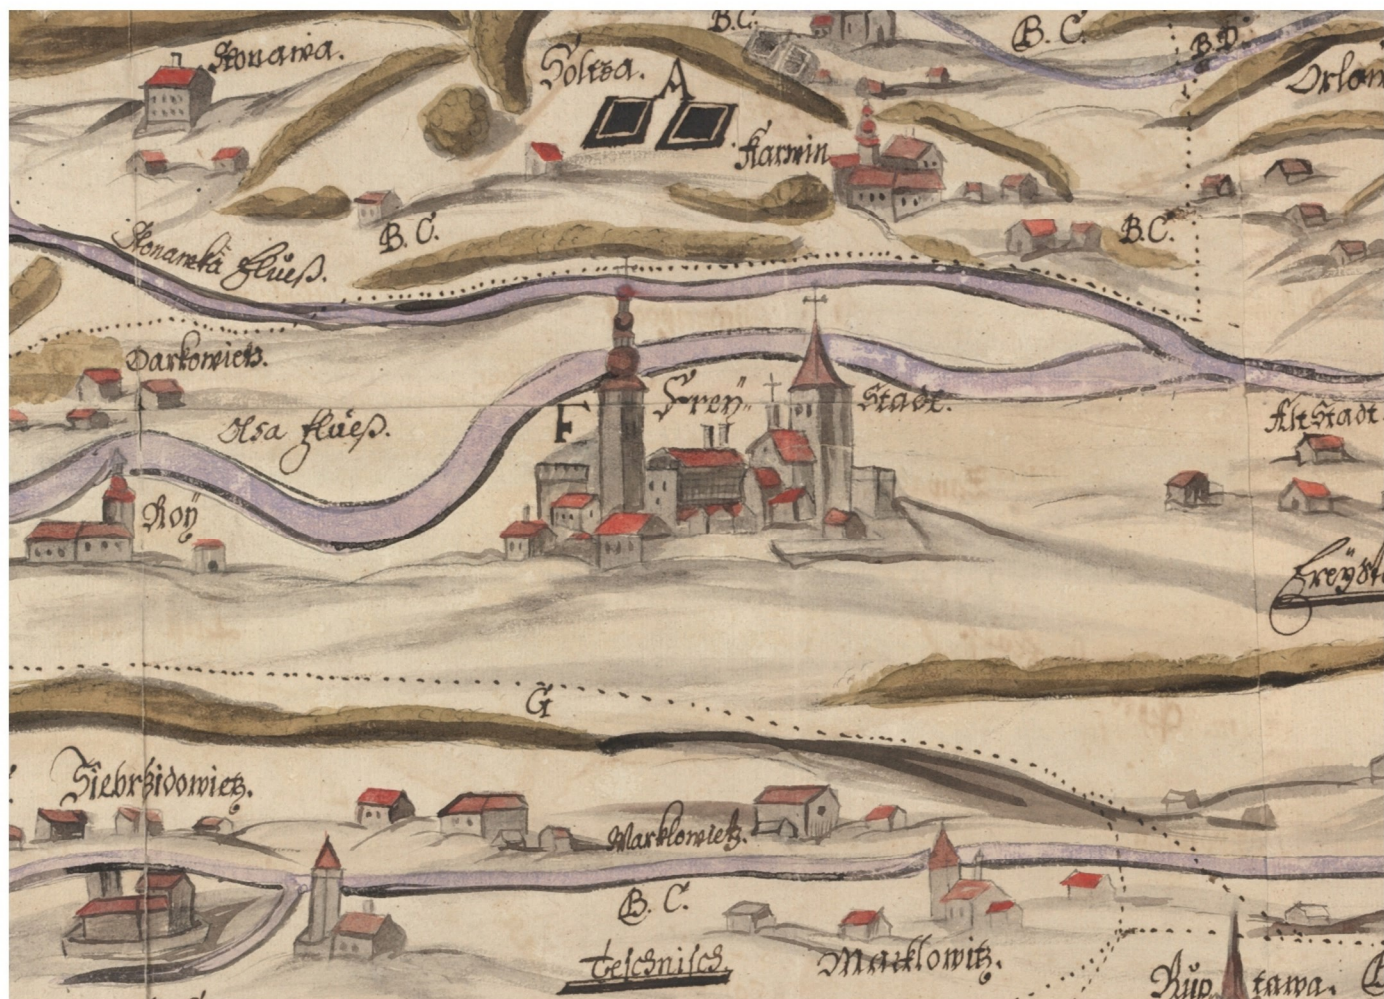 B.C.
B. C.
B.D.
Stonawa.
Soltza.
A
Orlow
Karwin
B. C.
B.C.
Stonawka flueß.
Darkowietz.
Olsa flueß.
F
Freÿ Stadt.
Alt Stadt.
Roÿ
Freÿst
G
Siebrzidowietz.
Marklowietz.
B. C.
Teschnisch.
Marklowitz.
Rup tawa.